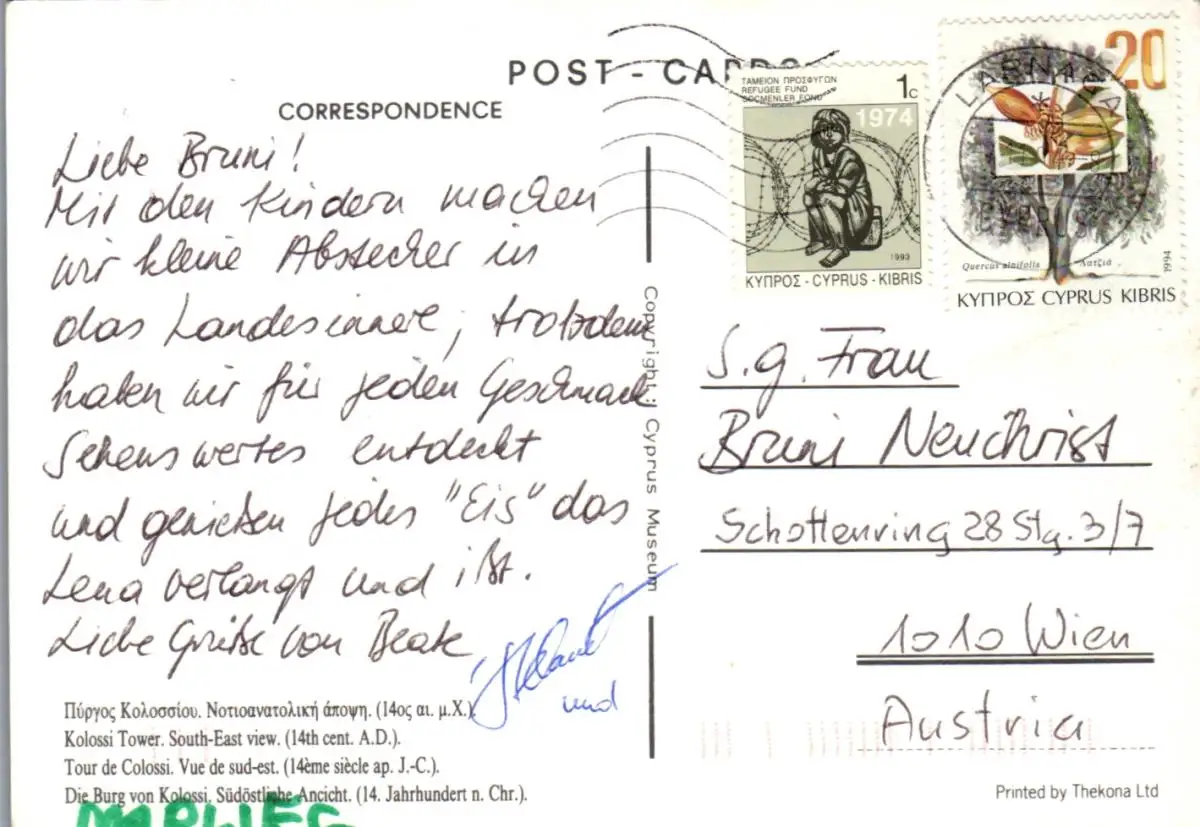 POST - CARD
CORRESPONDENCE
Liebe Bruni!
Mit den Kindern machen
wir kleine Abstecher in
das Landesinnere, trotzdem
haben wir für jeden Geschmack
Sehenswertes entdeckt
und genießen jedes "Eis" das
Lena verlangt und ißt.
Liebe Grüße von Beate
und
Πύργος Κολοσσίου. Νοτιοανατολική άποψη. (14ος αι. μ.Χ.).
Kolossi Tower. South-East view. (14th cent. A.D.).
Tour de Colossi. Vue de sud-est. (14ème siècle ap. J.-C.).
Die Burg von Kolossi. Südöstliche Ancicht. (14. Jahrhundert n. Chr.).
Copyright: Cyprus Museum
ΤΑΜΕΙΟΝ ΠΡΟΣΦΥΓΩΝ
REFUGEE FUND
GÖÇMENLER FONDU
1c
1974
1993
ΚΥΠΡΟΣ - CYPRUS - KIBRIS
20
LARNACA
CYPRUS
Quercus alnifolia Λατζιά
1994
ΚΥΠΡΟΣ CYPRUS KIBRIS
S.g. Frau
Bruni Neuchrist
Schottenring 28 Stg. 3/7
1010 Wien
Austria
Printed by Thekona Ltd